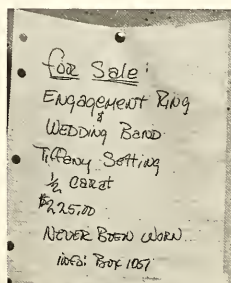 FOR Sale:
ENGAGEMENT RING
&
WEDDING BAND
Tiffany Setting
1/2 carat
$225.00
NEVER BEEN WORN
INFO: BOX 1057